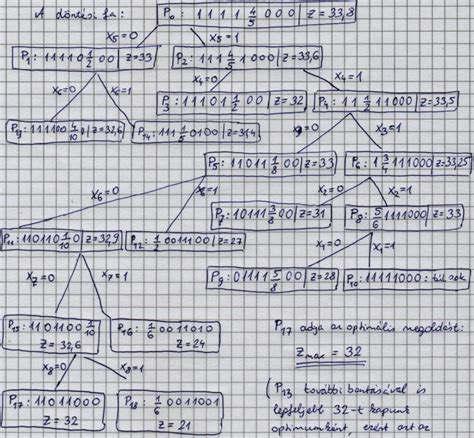 A döntési fa:
P₀: 1 1 1 1 4/5 0 0 0 | Z = 33,8
x₅=0
x₅=1
P₁: 1 1 1 1 0 1/2 0 0 | Z=33
P₂: 1 1 1 4/5 1 0 0 0 | Z=33,6
x₆=0
x₆=1
x₄=0
x₄=1
P₃: 1 1 1 0 1 1/2 0 0 | Z=32
P₄: 1 1 1/2 1 1 0 0 0 | Z=33,5
1 1 1 1 0 0 4/10 0 | Z=32,6
P₁₄: 1 1 1 1/5 0 1 0 0 | Z=31,4
x₃=1
P₅: 1 1 0 1 1 1/8 0 0 | Z=33
P₆: 1 3/4 1 1 1 0 0 0 | Z=33,25
x₆=0
x₆=1
x₂=0
x₂=1
P₇: 1 0 1 1 1 3/8 0 0 | Z=31
P₈: 5/6 1 1 1 1 0 0 0 | Z=33
P₁₁: 1 1 0 1 1 0 1/10 0 | Z=32,9
P₁₂: 1/2 0 0 1 1 1 0 0 | Z=27
x₁=0
x₁=1
P₉: 0 1 1 1 1 5/8 0 0 | Z=28
P₁₀: 1 1 1 1 1 0 0 0 : túl sok
x₇=0
x₇=1
P₁₅: 1 1 0 1 1 0 0 1/10
Z = 32,6
P₁₆: 1/6 0 0 1 1 0 1 0
Z = 24
P₁₇ adja az optimális megoldást:
Z max = 32
x₈=0
x₈=1
P₁₇: 1 1 0 1 1 0 0 0
Z = 32
P₁₈: 1/6 0 0 1 1 0 0 1
Z = 21
(P₁₃ további bontásával is
legfeljebb 32-t kapunk
optimumként, ezért ezt az